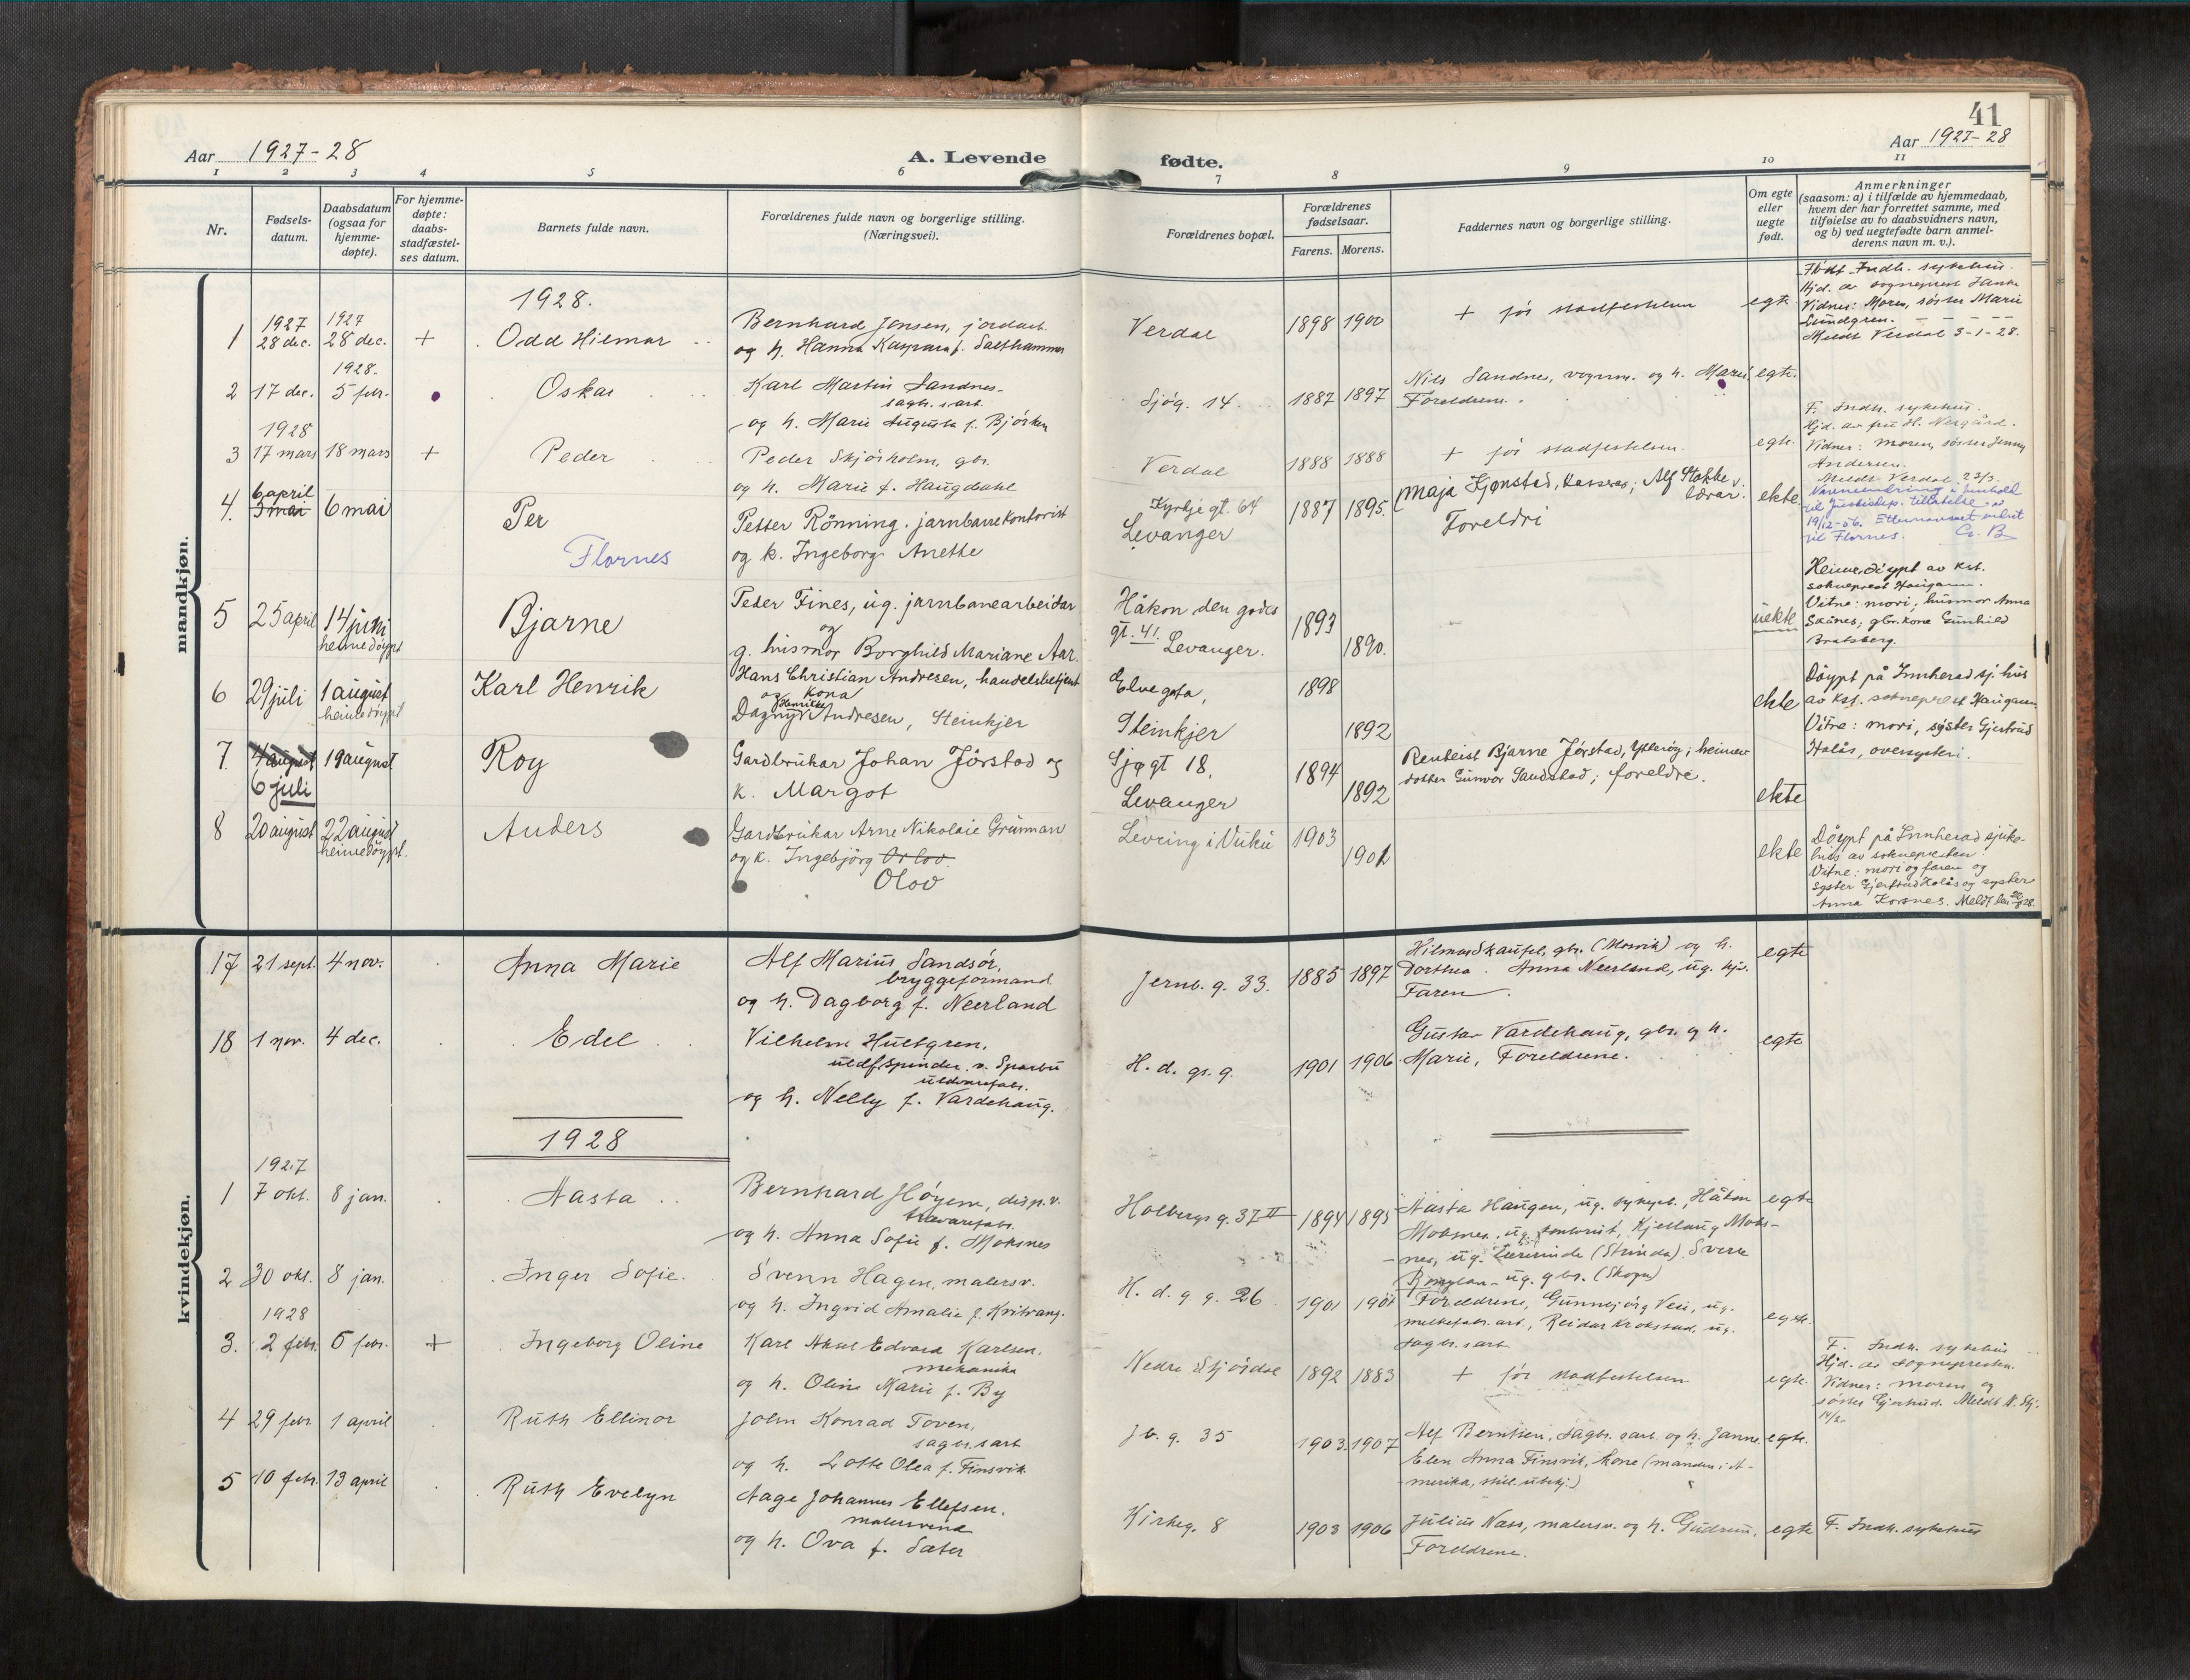 41
Aar 1927-28
A. Levende fødte.
Aar 1927-28
1 2 3 4 5 6 7 8 9 10 11
Nr.
Fødsels-
datum.
Daabsdatum
(ogsaa for
hjemme-
døpte).
For hjemme-
døpte:
daabs-
stadfæstel-
ses datum.
Barnets fulde navn.
Forældrenes fulde navn og borgerlige stilling.
(Næringsvei).
Forældrenes bopæl.
Forældrenes
fødselsaar.
Farens. Morens.
Faddernes navn og borgerlige stilling.
Om egte
eller
uegte
født.
Anmerkninger
(saasom: a) i tilfælde av hjemmedaab,
hvem der har forrettet samme, med
tilføielse av to daabsvidners navn,
og b) ved uegtefødte barn anmel-
derens navn m. v.).
mandkjøn.
1928.
1
1927
28 dec.
1927
28 dec.
+
Odd Hilmar
Bernhard Jensen, jordarb.
og h. Hanna Kaspara f. Salthammer
Verdal
1898 1900
+ før stadfestelsen
egte
Født Indh. sykehus.
Hjd. av sogneprest
Vidner: Moren, søster Marie
Lundgren.
Meldt Verdal 3-1-28.
2
17 dec.
1928.
5 febr.
Oskar
Karl Martin Sandnes
sagbr.sarb.
og h. Marie Augusta f. Bjørken
Sjøg. 14.
1887 1897
Nils Sandnes, vognm. og h. Marie
Foreldrene.
egte.
3
1928
17 mars
18 mars
+
Peder
Peder Skjørholm, gbr.
og h. Marie f. Haugdahl
Verdal
1888 1888
+ før stadfestelsen.
egte.
F. Indh. sykehus.
Hjd. av fru H. Nesgård.
Vidner: moren, søster Jenny
Andersen.
Meldt Verdal 23/3.
4.
6 april
3 mai
6 mai
Per
Flornes
Petter Rönning, jarnbanekontorist
og k. Ingeborg Anette
Kyrkjegt. 64
Levanger
1887 1895.
Maja Kjønstad, kasserar; Alf Stokke,
lærar.
Foreldri
ekte
Navneendring i henhold
til Justisdep. tillatelse av
19/12-56. Etternavnet endret
til Flornes. G. B
5
25 april
14 juni
heimedöypt
Bjarne
Peder Fines, ug. jarnbanearbeidar
og
g. husmor Borghild Mariane Aar.
Håkon den godes
gt. 41. Levanger.
1893
1890.
uekte
Heimedöypt av kst.
sokneprest Haugann.
Vitne: mori; husmor Anna
Skånes; gbr. kone Gunhild
Bratsberg.
6
29 juli
1 august
heimedöypt
Karl Henrik
Hans Christian Andresen, handelsbetjent
og kona
Dagny Henrikke Andresen, Steinkjer
Elvegata,
Steinkjer
1898
1892
ekte
Döypt på Innherad sj. hus
av kst. sokneprest Haugann.
Vitne: mori, syster Gjertrud
Holås, oversysteri.
7.
4 august
6 juli
19 august
Roy
Gardbrukar Johan Jörstad og
k. Margot
Sjøgt 18,
Levanger
1894
1892
Renteist Bjarne Jörstad, Ytteröy; heimev.
dotter Gunvor Sandstad; foreldre.
ekte
8
20 august
22 august
heimedöypt.
Anders
Gardbrukar Arne Nikolaie Grunnan
og k. Ingebjörg Orlov
Olov
Levring i Vuku
1903
1901
ekte
Döypt på Innherad sjuke-
hus av soknepresten
Vitne: mori og faren og
syster Gjertrud Holås og syster
Anna Korsnes. Meldt den
kvindekjøn.
17
21 sept.
4 nov.
Anna Marie
Alf Marius Sandsør,
bryggeformand
og h. Dagborg f. Neerland
Jernb. g. 33.
1885 1897
Hilmar Skaufel, gbr. (Mosvik) og h.
Dorthea. Anna Neerland, ug. hjv.
Faren.
egte
18
1 nov.
4 dec.
Edel
Vilhelm Hultgren,
uldf.spinder v. Sparbu
uldvarefabr.
og h. Nelly f. Vardehaug.
H. d. gs. g.
1901 1906
Gustav Vardehaug, gbr. og h.
Marie, Foreldrene.
egte
1928
1
1927
7 okt.
8 jan.
Aasta
Bernhard Höyem, disp. v.
trevarefabr.
og h. Anna Sofie f. Moksnes
Holbergs g. 37 II
1894 1895
Aasta Haugen, ug. sykepl., Håkon
Moksnes, ug. kontorist, Kjellaug Moks-
nes, ug. lærerinde (Strinda). Sverre
ug. gbr. (Skogn)
egte
2
30 okt.
8 jan.
Inger Sofie.
Svenn Hagen, malersv.
og h. Ingrid Amalie f. Kvitvang.
H. d. g. g. 26
1901 1901
Foreldrene, Gunnbjørg Veie, ug.
melkefabr. arb., Reidar Krokstad, ug.
sagbr.sarb
egte.
3.
1928
2 febr.
6 febr.
+
Ingeborg Oline
Karl Aksel Edvard Karlsen,
mekaniker
og h. Oline Marie f. By
Nedre Stjørdal
1892 1883
+ før stadfestelsen
egte.
F. Indh. sykehus
Hjd. av sognepresten.
Vidner: moren og
søster Gjertrud. Meldt N. Stj.
14/2.
4
29 febr
1 april
Ruth Ellinor
John Konrad Toven,
sagbr.sarb
og h. Lotte Olea f. Finsvik
Jb. g. 35
1903. 1907
Alf Berntsen, sagbr.sarb. og h. Janna
Elen Anna Finsvik, kone (manden i A-
merika, stil. ubekj.)
egte.
5
10 febr.
13 april
Ruth Evelyn
Aage Johannes Ellefsen,
malersvend
og h. Ova f. Sæter
Kirkeg. 8
1903 1906
Julius Næss, malersv. og h. Gudrun,
Foreldrene.
egte
F. Indh. sykehus